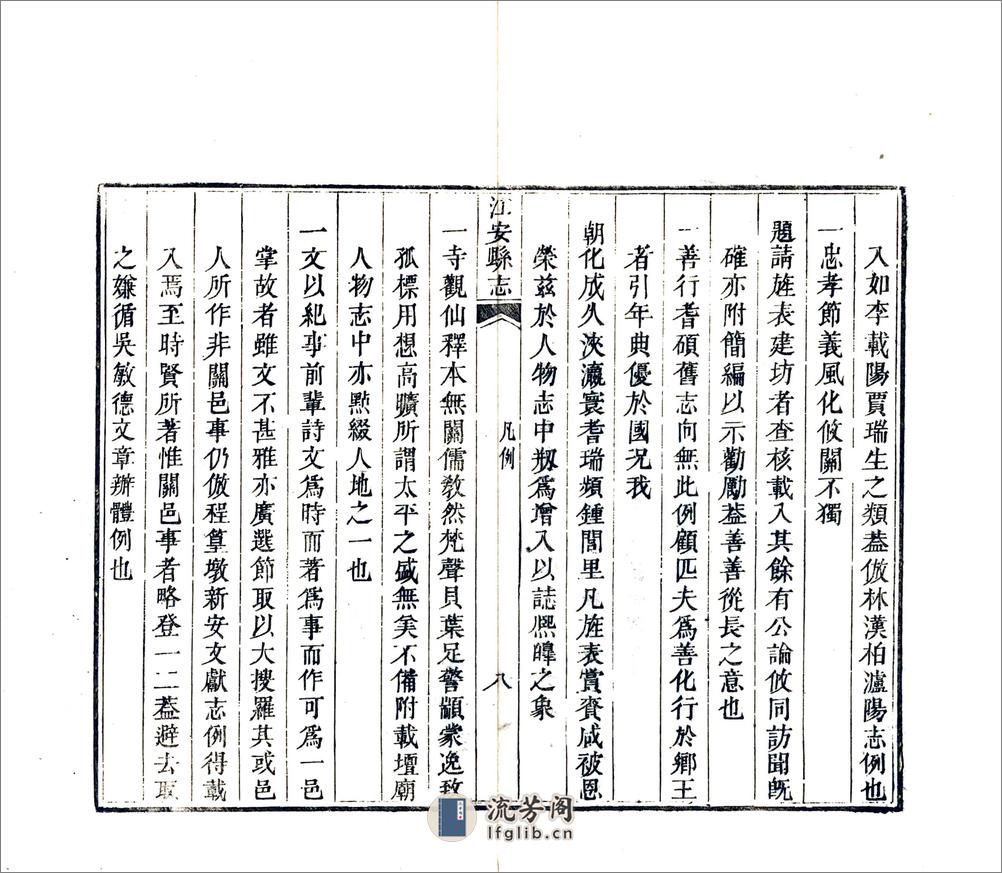 入如李載陽賈瑞生之類葢倣林漢柏瀘陽志例也
一忠孝節義風化攸關不獨
題請旌表建坊者查核載入其餘有公論攸同訪聞旣
確亦附簡編以示勸勵葢善善從長之意也
一善行耆碩舊志向無此例顧匹夫爲善化行於鄉王
者引年典優於國况我
朝化成久浹瀛寰耆瑞頻鍾閭里凡旌表賞賚咸被恩
榮兹於人物志中剏爲增入以誌熈皡之象
江安縣志
凡例
八
一寺觀仙釋本無關儒敎然梵聲貝葉足警顓蒙逸致
孤標用想高曠所謂太平之盛無美不備附載壇廟
人物志中亦㸃綴人地之一也
一文以紀事前輩詩文爲時而著爲事而作可爲一邑
掌故者雖文不甚雅亦廣選節取以大搜羅其或邑
人所作非關邑事仍倣程篁墩新安文獻志例得載
入焉至時賢所著惟關邑事者略登一二葢避去取
之嫌循吳敏德文章辨體例也
流芳阁
lfglib.cn